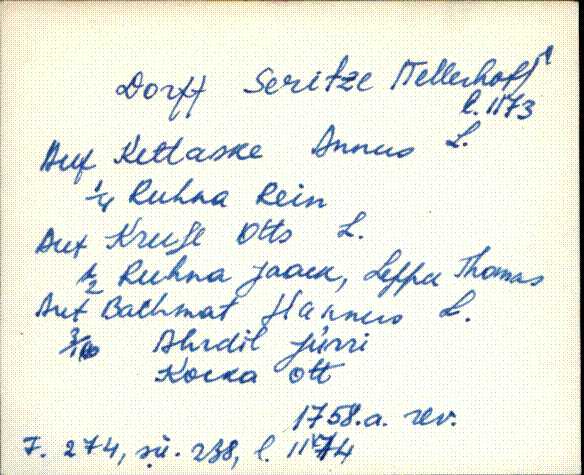 Dorff Seritze Mellerhoff
l. 1173
Auf Kettaske Annus L.
1/4 Ruhna Rein
Auf Kruse Otts L.
1/2 Ruhna Jaack, Leppa Thomas
Auf Bachmat Hannus L.
Ahrdil Jürri
Kocka Ott
1758.a. rev.
F. 274, sü. 238, l. 1174